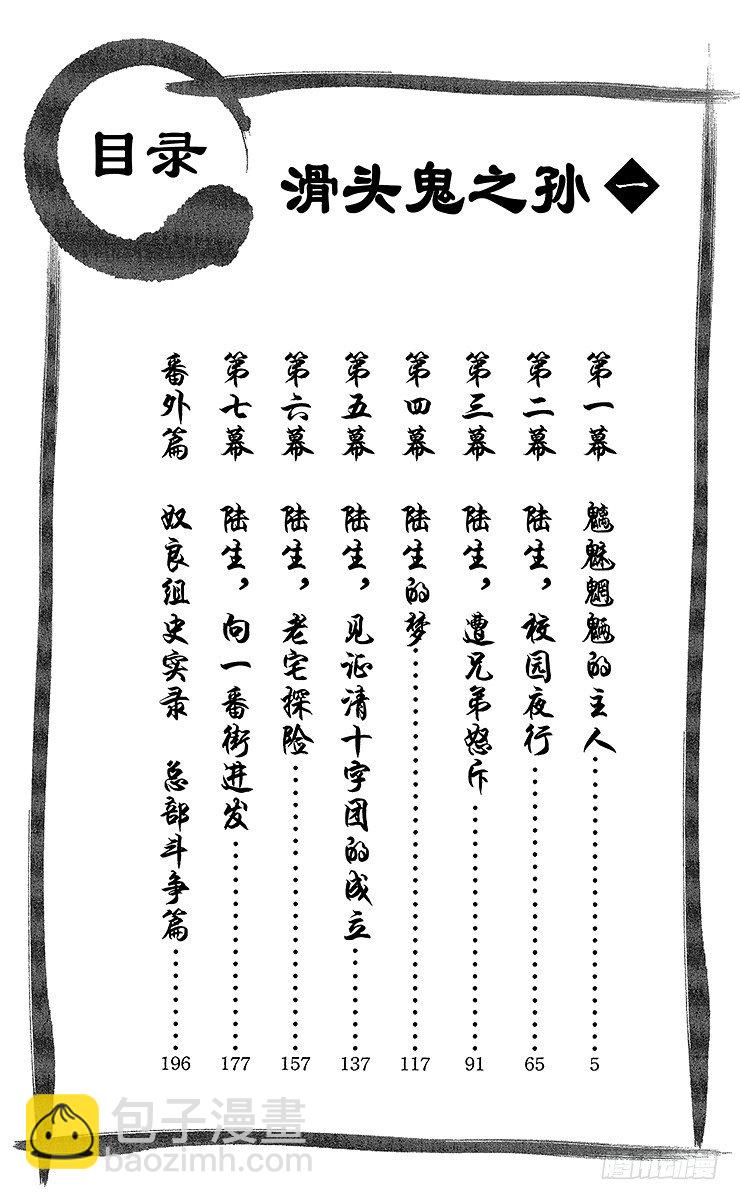 目录
滑头鬼之孙 一
第一幕 魑魅魍魉的主人 5
第二幕 陆生，校园夜行 65
第三幕 陆生，遭兄弟怒斥 91
第四幕 陆生的梦 117
第五幕 陆生，见证清十字团的成立 137
第六幕 陆生，老宅探险 157
第七幕 陆生，向一番街进发 177
番外篇 奴良组史实录 总部斗争篇 196
包子漫畫
baozimh.com
腾讯动漫